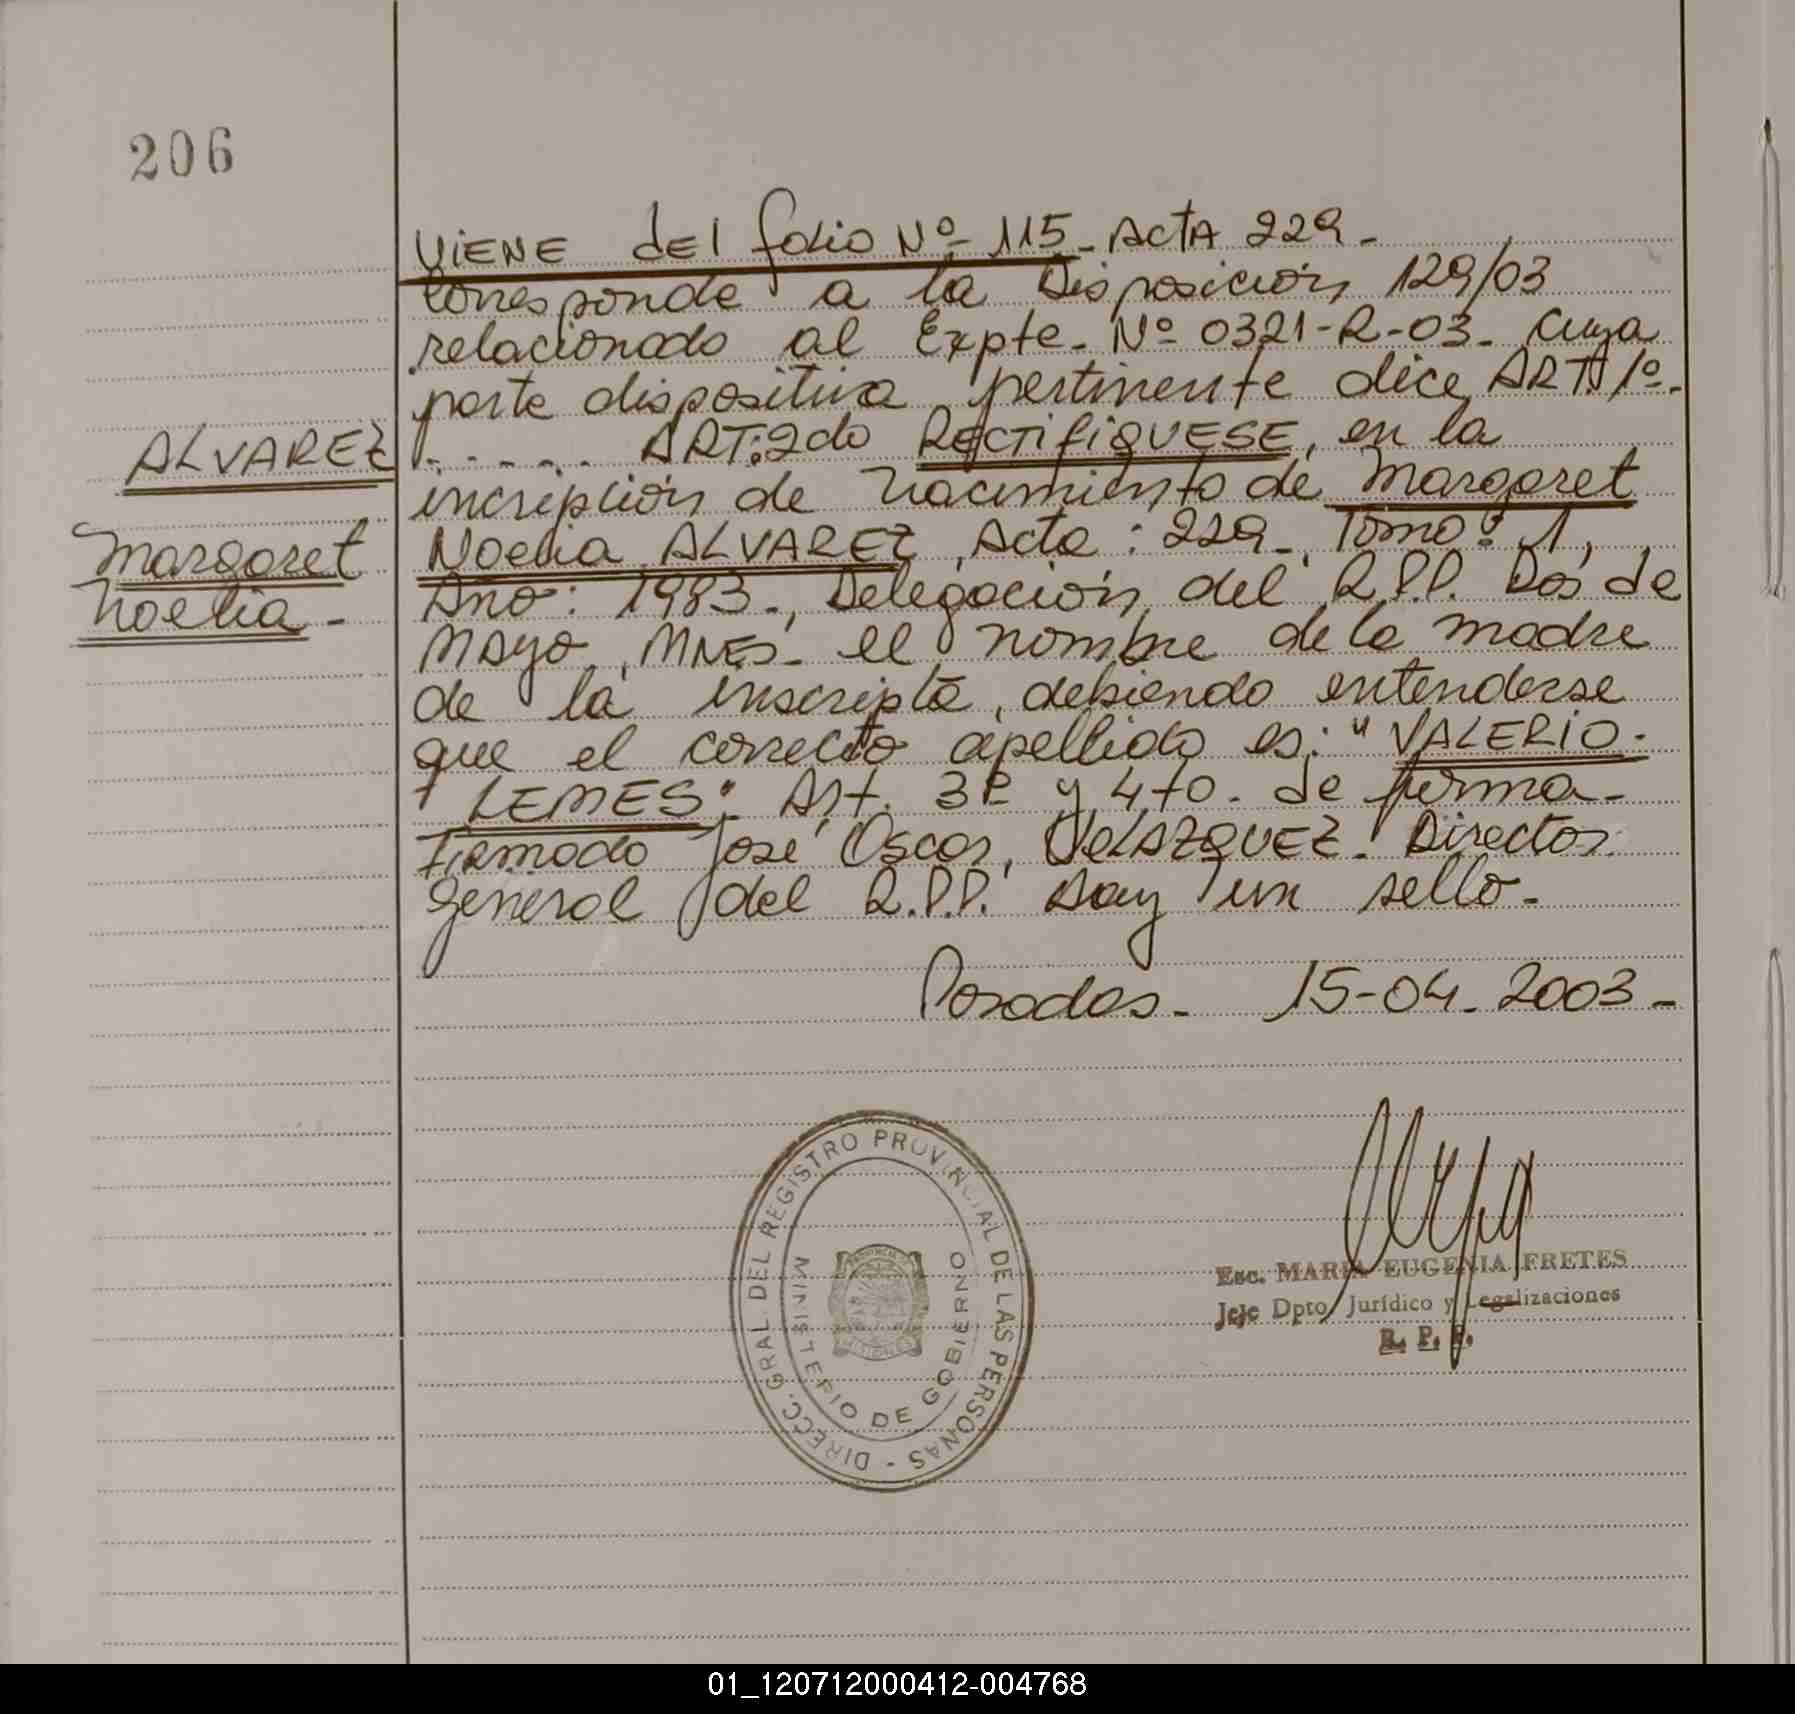 206
VIENE del folio Nº 115 - Acta 229 -
Corresponde a la Disposición 129/03
relacionado al Expte. Nº 0321-R-03 - cuya
parte dispositiva pertinente dice, ART. 1º -
- - - - - ART: 2do RECTIFIQUESE, en la
incripción de nacimiento de Margaret
Noelia ALVAREZ, Acta: 229 -, Tomo: 1,
Año: 1983 -, Delegación del R.P.P. Dos de
Mayo, MNES - el nombre de la madre
de la inscripta, debiendo entenderse
que el correcto apellido es: "VALERIO -
LEMES". Art. 3º y 4to. de forma -
Firmado José Oscar, VELAZQUEZ. Director
General del R.P.P. Hay un sello -
Posadas - 15-04-2003 -
ALVAREZ
Margaret
Noelia -
DIRECC. GRAL. DEL REGISTRO PROVINCIAL DE LAS PERSONAS -
MINISTERIO DE GOBIERNO
MISIONES
Esc. MARIA EUGENIA FRETES
Jefe Dpto. Jurídico y Legalizaciones
R. P. P.
01_120712000412-004768